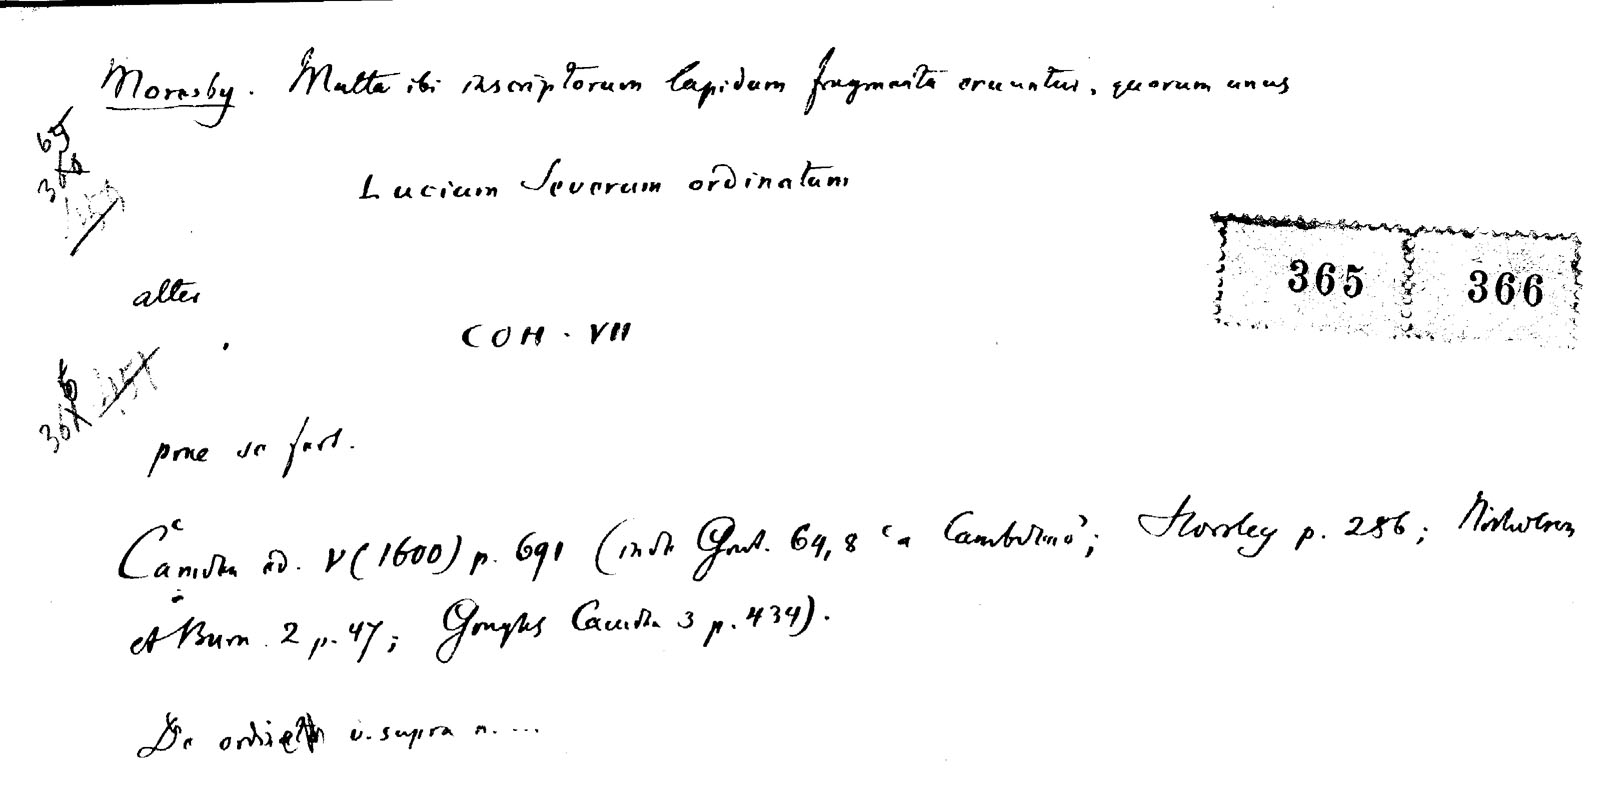 Moresby. Multa ibi inscriptorum lapidum fragmenta eruuntur, quorum unus
Lucium Severum ordinatum
365 366
alter
COH · VII
prae se fert.
Camden ed. V (1600) p. 691 (inde Grut. 64, 8 'a Camdeno'; Horsley p. 286; Nicholson
et Burn. 2 p. 47; Goughs Camden 3 p. 434).
De ordine v. supra n. ...